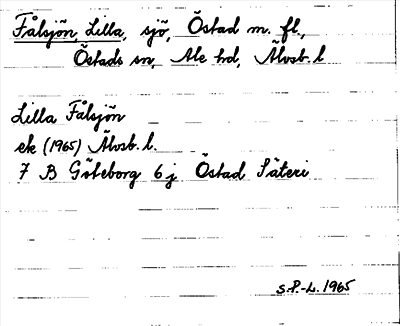 Fålsjön, Lilla, sjö, Östad m. fl.,
Östads sn, Ale hd, Älvsb. l
Lilla Fålsjön
ek (1965) Älvsb. l.
7 B Göteborg 6 j Östad Säteri
S.P.-L. 1965